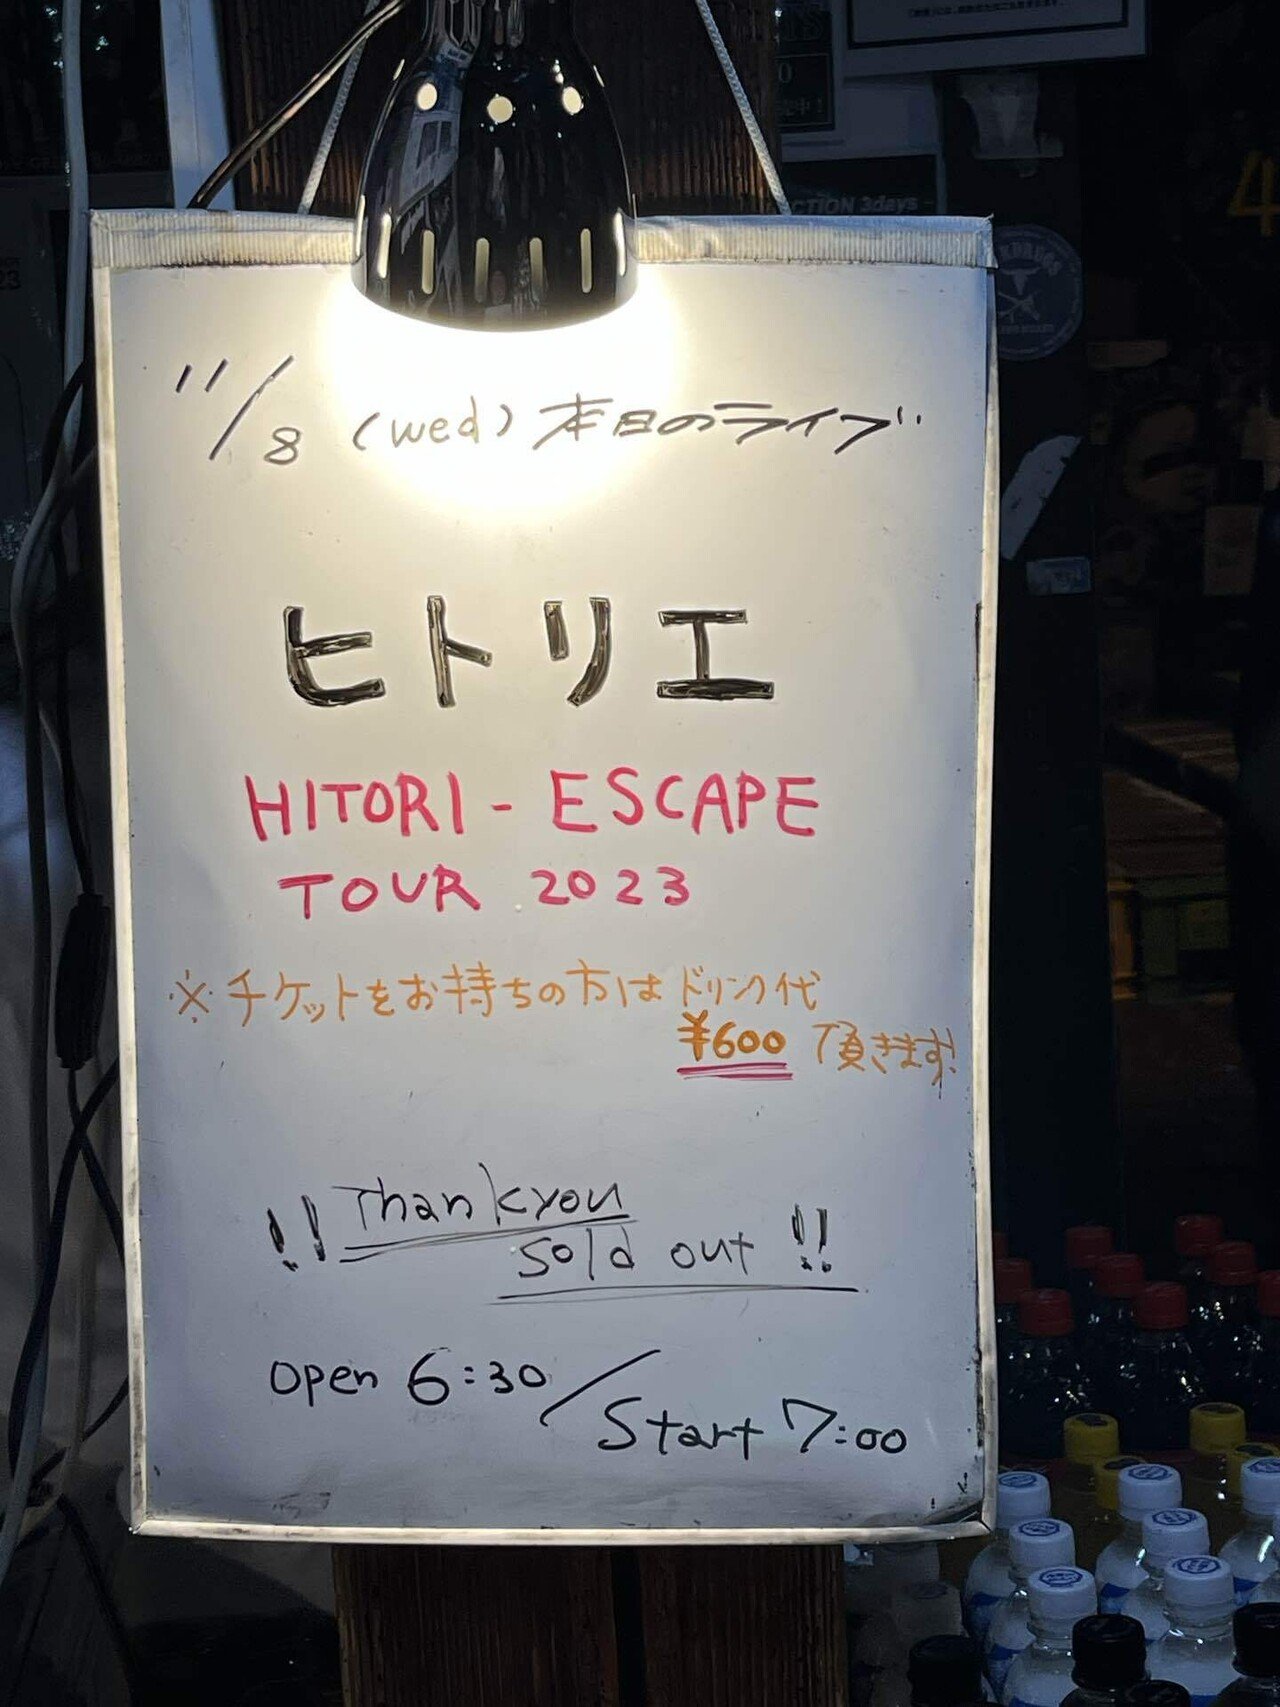 CTION 3days
11/8 (wed) 本日のライブ
ヒトリエ
HITORI-ESCAPE
TOUR 2023
※チケットをお持ちの方はドリンク代
¥600 頂きます
!! Thankyou
sold out !!
open 6:30/Start 7:00